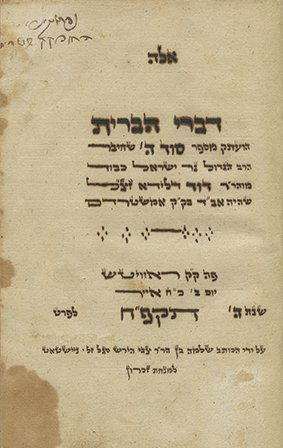 אלה
דברי הברית
הועתק מספר סוד ה' שחיבר
הרב הגדול נר ישראל כבוד
מוהר"ר דוד דלידא זצ"ל
שהיה אב"ד בק"ק אמשטרדם
פה קק ראוויטש
יום ב' כ"ח אייר
שנת ה' תקפ"ח לפרט
על ידי הכותב שלמה בן הר"ר צבי הירש סגל זל
למנחת זכרון